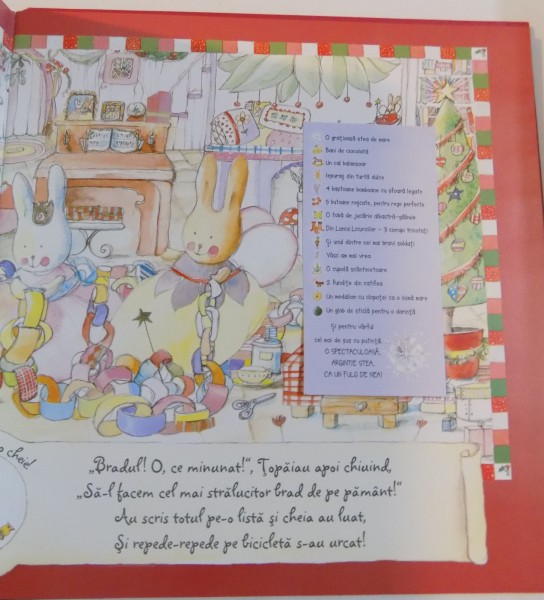 O grațioasă stea de mare
Bani de ciocolată
Un cal balansoar
Iepuraș din turtă dulce
4 bastoane bomboane cu sfoară legate
5 butoane roșcate, pentru roșe perfecte
O tobă de jucărie albastră-gălbuie
Din Lunca Lounilor - 3 conuri tricotați
Și unul dintre cei mai bravi soldați
Vâsc am mai vrea
O cupolă scânteietoare
2 fundițe din catifea
Un medalion cu clopoței ca o inimă mare
Un glob de sticlă pentru o dorință
Și pentru vârful
cel mai de sus cu putință
O SPECTACULOASĂ,
ARGINTIE STEA,
CA UN FULG DE NEA!
o cheie!
„Bradul! O, ce minunat!", Țopăiau apoi chiuind,
„Să-l facem cel mai strălucitor brad de pe pământ!"
Au scris totul pe-o listă și cheia au luat,
Și repede-repede pe bicicletă s-au urcat!